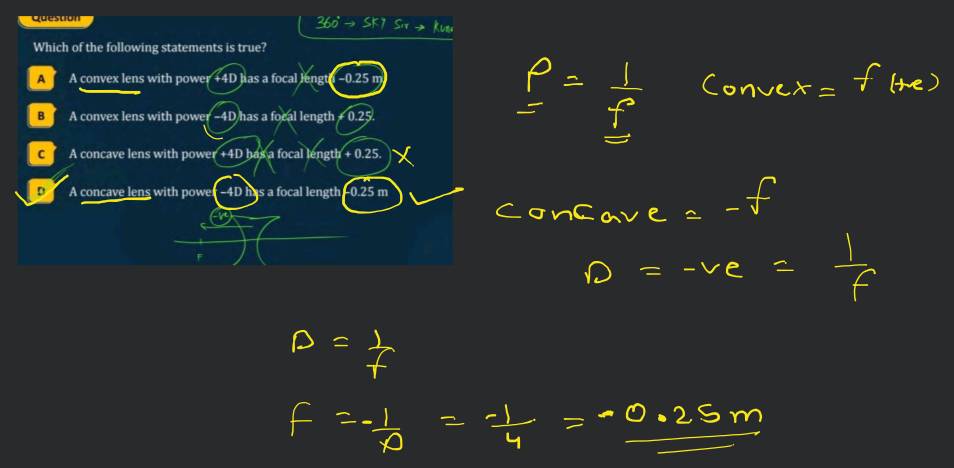 Question
360° → SKY Sir →
Which of the following statements is true?
A A convex lens with power +4D has a focal length −0.25 m
B A convex lens with power −4D has a focal length + 0.25.
C A concave lens with power +4D has a focal length + 0.25. X
D A concave lens with power −4D has a focal length −0.25 m
-ve
F
P = 1/f convex = f (+ve)
concave = -f
D = -ve = 1/f
D = 1/f
f = -1/D = -1/4 = -0.25m